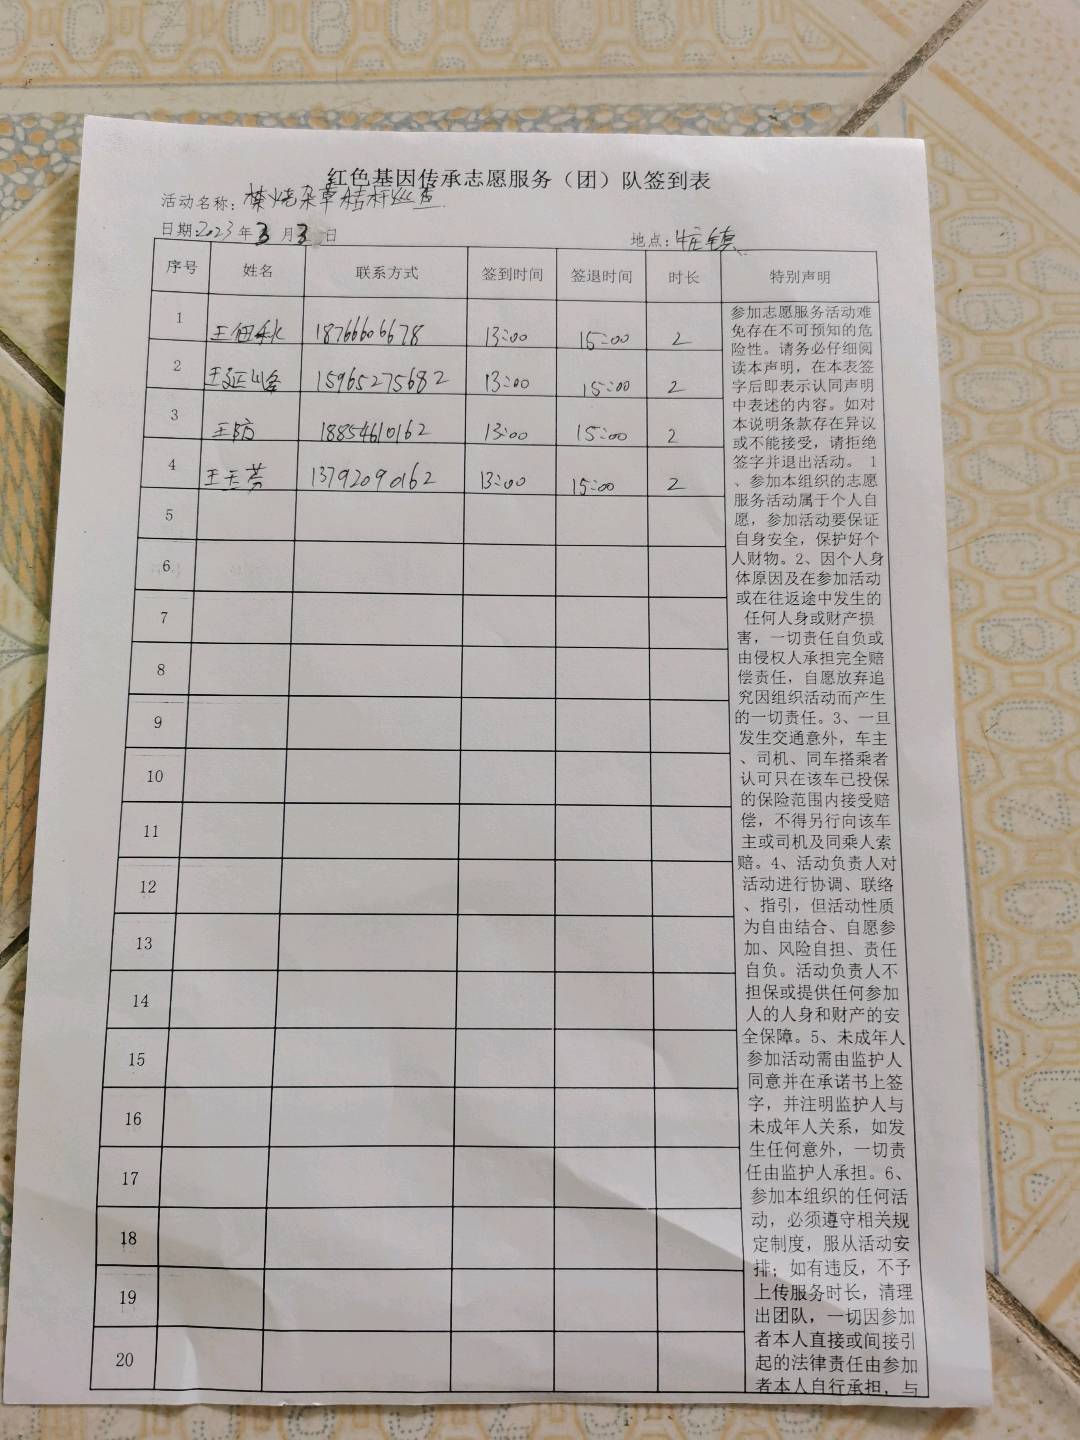 红色基因传承志愿服务（团）队签到表
活动名称：禁烧杂草秸秆巡查
日期：2023年3月3日 地点：
序号 姓名 联系方式 签到时间 签退时间 时长 特别声明
1 18766606678 13:00 15:00 2
2 15965275682 13:00 15:00 2
3 王防 18854610162 13:00 15:00 2
4 王玉芳 13792090162 13:00 15:00 2
5
6
7
8
9
10
11
12
13
14
15
16
17
18
19
20
参加志愿服务活动难
免存在不可预知的危
险性。请务必仔细阅
读本声明，在本表签
字后即表示认同声明
中表述的内容。如对
本说明条款存在异议
或不能接受，请拒绝
签字并退出活动。 1
、参加本组织的志愿
服务活动属于个人自
愿，参加活动要保证
自身安全，保护好个
人财物。2、因个人身
体原因及在参加活动
或在往返途中发生的
任何人身或财产损
害，一切责任自负或
由侵权人承担完全赔
偿责任，自愿放弃追
究因组织活动而产生
的一切责任。3、一旦
发生交通意外，车主
、司机、同车搭乘者
认可只在该车已投保
的保险范围内接受赔
偿，不得另行向该车
主或司机及同乘人索
赔。4、活动负责人对
活动进行协调、联络
、指引，但活动性质
为自由结合、自愿参
加、风险自担、责任
自负。活动负责人不
担保或提供任何参加
人的人身和财产的安
全保障。5、未成年人
参加活动需由监护人
同意并在承诺书上签
字，并注明监护人与
未成年人关系，如发
生任何意外，一切责
任由监护人承担。6、
参加本组织的任何活
动，必须遵守相关规
定制度，服从活动安
排；如有违反，不予
上传服务时长，清理
出团队，一切因参加
者本人直接或间接引
起的法律责任由参加
者本人自行承担，与